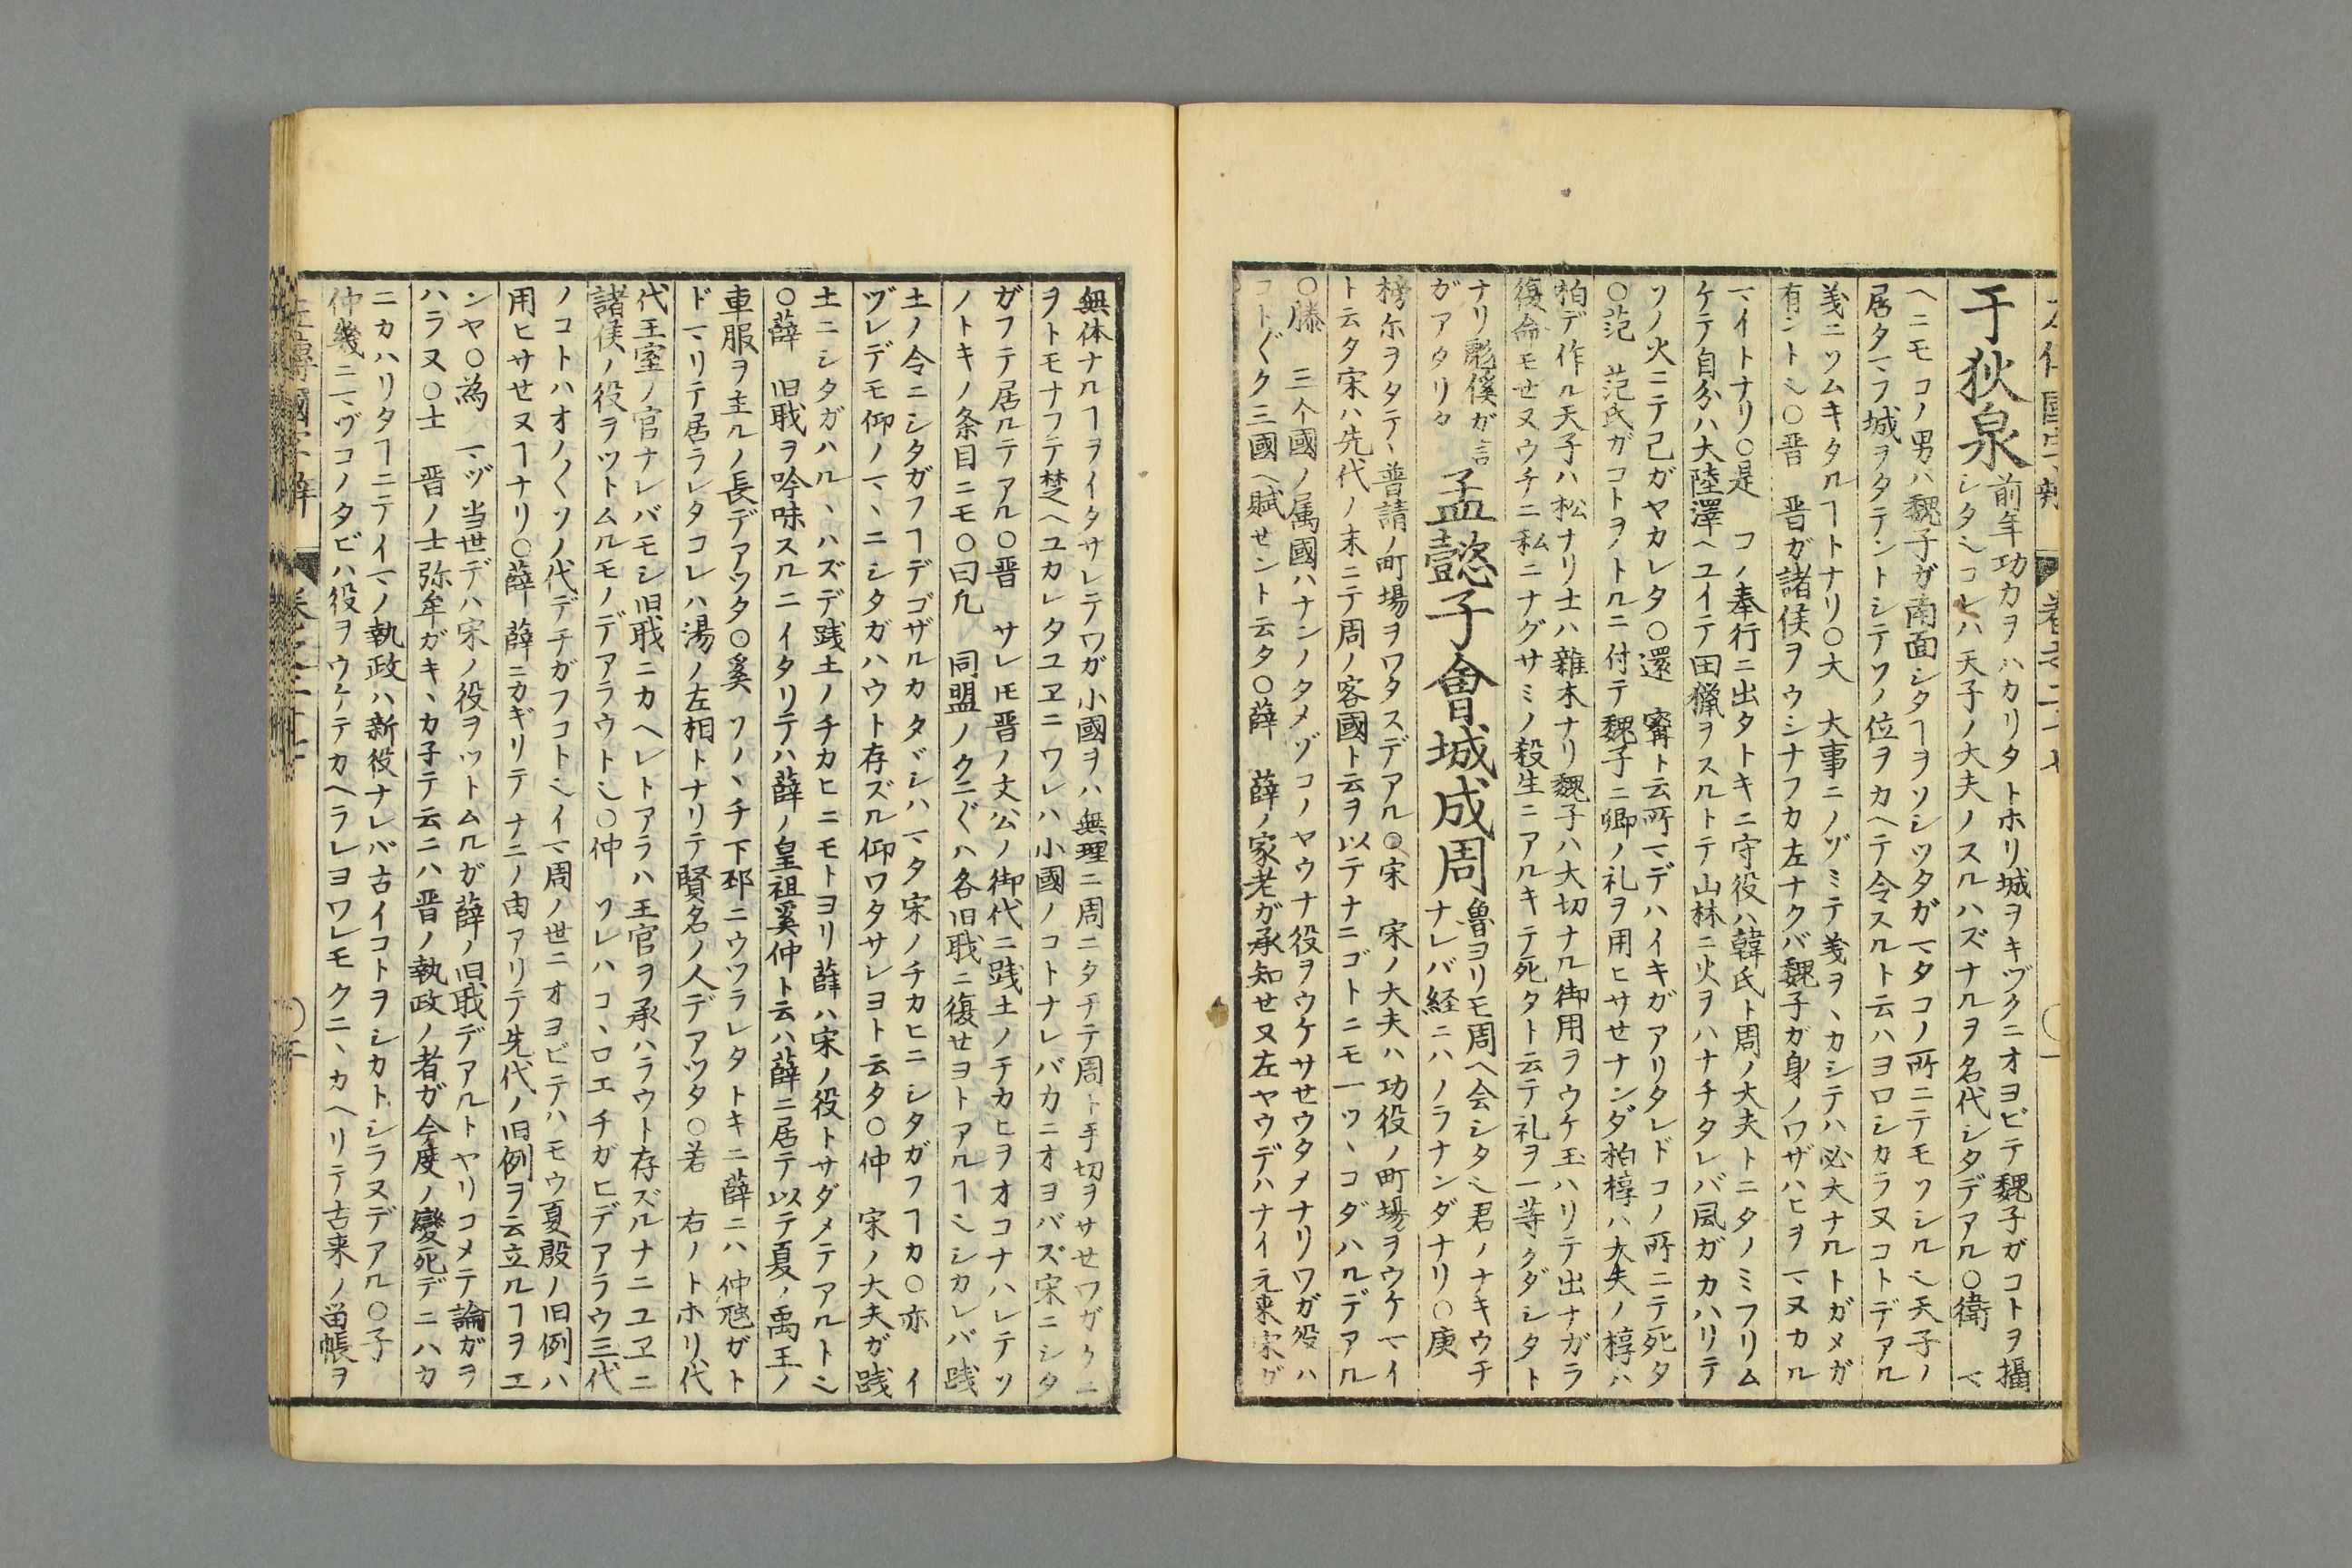 于狄泉
前年功力ヲハカリタトホリ城ヲキヅクニオヨビテ魏子ガコトヲ攝
シタ〻コレハ天子ノ大夫ノスルハズナルヲ名代シタデアル〇衛 マ
ヘニモコノ男ハ魏子ガ南面シタヿヲソシツタガマタコノ所ニテモソシル〻天子ノ
居タマフ城ヲタテントシテソノ位ヲカヘテ令スルト云ハヨロシカラヌコトデアル
義ニソムキタルヿトナリ〇大 大事ニノゾミテ義ヲヽカシテハ必大ナルトガメガ
有ント〻〇晋 晋ガ諸侯ヲウシナフカ左ナクバ魏子ガ身ノワザハヒヲマヌカル
マイトナリ〇是 コノ奉行ニ出タトキニ守役ハ韓氏ト周ノ大夫トニタノミフリム
ケテ自分ハ大陸澤ヘユイテ田猟ヲスルトテ山林ニ火ヲハナチタレバ風ガカハリテ
ソノ火ニテ己ガヤカレタ〇還 甯ト云所マデハイキガアリタレドコノ所ニテ死タ
〇范 范氏ガコトヲノトルニ付テ魏子ニ卿ノ礼ヲ用ヒサセナンダ柏椁ハ大夫ノ椁ハ
柏デ作ル天子ハ松ナリ士ハ雜木ナリ魏子ハ大切ナル御用ヲウケ玉ハリテ出ナガラ
復命モセヌウチニ私ニナグサミノ殺生ニアルキテ死タト云テ礼ヲ一等クダシタト
ナリ彪傒ガ言
ガアタリタ
孟懿子會城成周
魯ヨリモ周ヘ会シタ〻君ノナキウチ
ナレバ経ニハノラナンダナリ〇庚
榜尓ヲタテヽ普請ノ町場ヲワタスデアル〇宋 宋ノ大夫ハ功役ノ町場ヲウケマイ
ト云タ宋ハ先代ノ末ニテ周ノ客國ト云ヲ以テナニゴトニモ一ツヽコダハルデアル
〇滕 三个國ノ属國ハナンノタメゾコノヤウナ役ヲウケサセウタメナリワガ役ハ
コト〲ク三國ヘ賦セント云タ〇薛 薛ノ家老ガ承知セヌ左ヤウデハナイ元来宋ガ
無体ナルヿヲイタサレテワガ小國ヲハ無理ニ周ニタチテ周ト手切ヲサセワガクニ
ヲトモナフテ楚ヘユカレタユヱニワレハ小國ノコトナレバカニオヨバズ宋ニシタ
ガフテ居ルテアル〇晋 サレ𪜈晋ノ文公ノ御代ニ践土ノチカヒヲオコナハレテソ
ノトキノ条目ニモ〇曰凡 同盟ノクニ〲ハ各旧職ニ復セヨトアルヿ〻シカレバ践
土ノ令ニシタガフヿデゴザルカタヾシハマタ宋ノチカヒニシタガフヿカ〇亦 イ
ヅレデモ仰ノマヽニシタガハウト存ズル仰ワタサレヨト云タ〇仲 宋ノ大夫ガ践
土ニシタガハルヽハズデ践土ノチカヒニモトヨリ薛ハ宋ノ役トサダメテアルト〻
〇薛 旧職ヲ吟味スルニイタリテハ薛ノ皇祖奚仲ト云ハ薛ニ居テ以テ夏ノ禹王ノ
車服ヲ主ルノ長デアツタ〇奚 ソノヽチ下邳ニウツラレタトキニ薛ニハ仲虺ガト
ドマリテ居ラレタコレハ湯ノ左相トナリテ賢名ノ人デアツタ〇若 右ノトホリ代
代王室ノ官ナレバモシ旧職ニカヘレトアラハ王官ヲ承ハラウト存ズルナニユヱニ
諸侯ノ役ヲツトムルモノデアラウト〻〇仲 ソレハコヽロエチガヒデアラウ三代
ノコトハオノ〱ソノ代デチガフコト〻イマ周ノ世ニオヨビテハモウ夏殷ノ旧例ハ
用ヒサセヌヿナリ〇薛 薛ニカギリテナニノ由アリテ先代ノ旧例ヲ云立ルヿヲエ
ンヤ〇為 マヅ当世デハ宋ノ役ヲツトムルガ薛ノ旧職デアルトヤリコメテ論ガヲ
ハラヌ〇士 晋ノ士弥牟ガキヽカ子テ云ニハ晋ノ執政ノ者ガ今度ノ變死デニハカ
ニカハリタヿニテイマノ執政ハ新役ナレバ古イコトヲシカトシラヌデアル〇子
仲幾ニマヅコノタビハ役ヲウケテカヘラレヨワレモクニヽカヘリテ古来ノ畄帳ヲ
左傳國字辨 巻之二十七